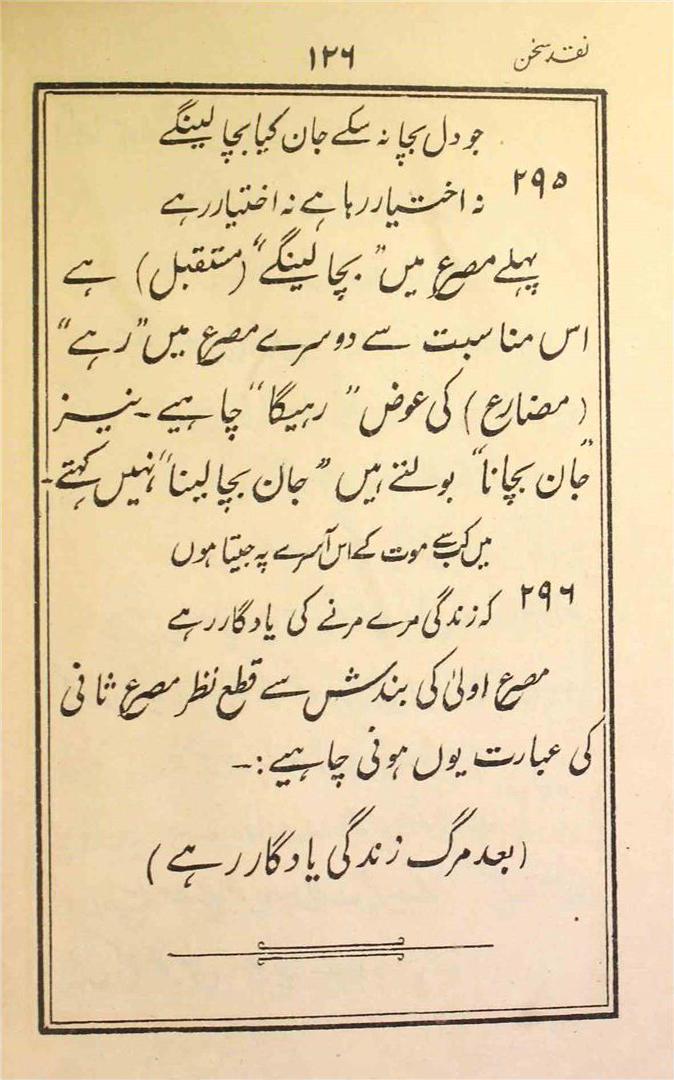 نقد سخن ۱۲۶
جو دل بچا نہ سکے جان کیا بچا لینگے
۲۹۵
نہ اختیار رہا ہے نہ اختیار رہے
پہلے مصرع میں "بچا لینگے" (مستقبل) ہے
اس مناسبت سے دوسرے مصرع میں "رہے"
(مضارع) کی عوض "رہیگا" چاہیے۔ نیز
"جان بچانا" بولتے ہیں "جان بچا لینا" نہیں کہتے۔
میں کب سے موت کے اس آسرے پہ جیتا ہوں
۲۹۶
کہ زندگی مرے مرنے کی یادگار رہے
مصرع اولیٰ کی بندش سے قطع نظر مصرع ثانی
کی عبارت یوں ہونی چاہیے:۔
(بعد مرگ زندگی یادگار رہے)